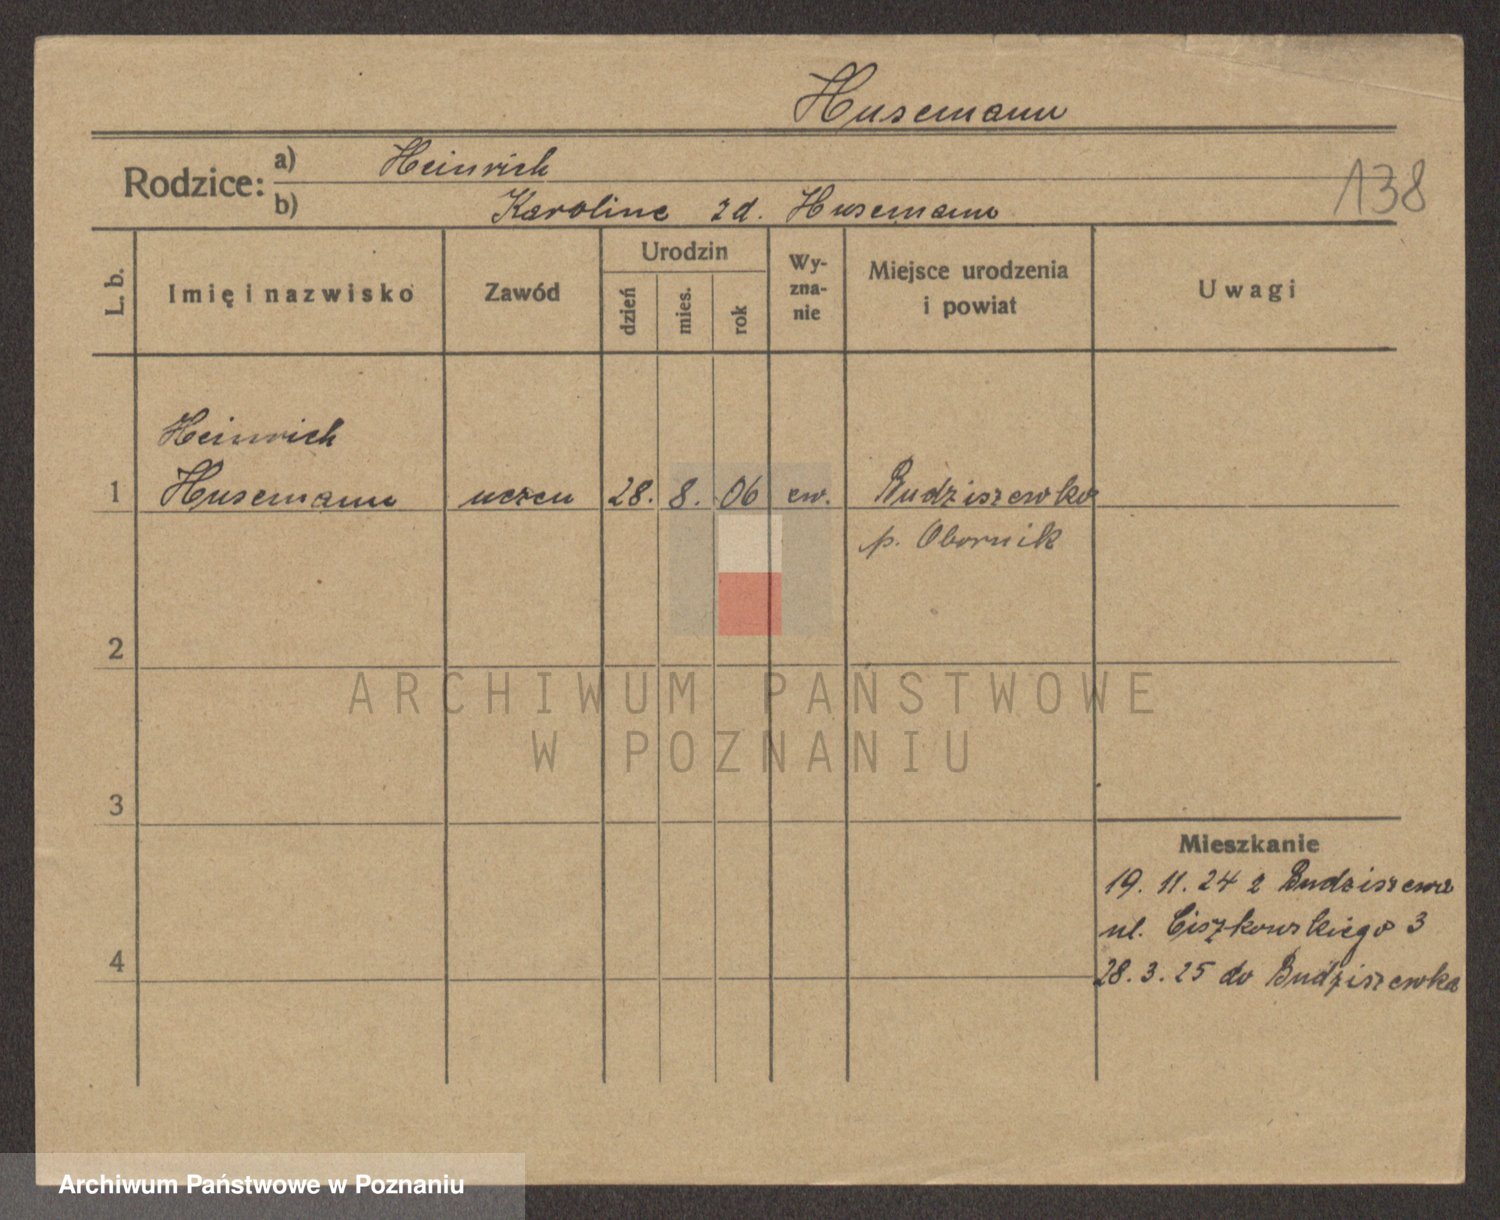 Husemann
Rodzice: a) Heinrich
b) Karoline zd. Husemann
138
L. b.
Imię i nazwisko
Zawód
Urodzin
dzień
mies.
rok
Wy-
zna-
nie
Miejsce urodzenia
i powiat
Uwagi
Heinrich
1 Husemann uczeń 28. 8. 06 ew. Budziszewko
p. Obornik
2
ARCHIWUM PAŃSTWOWE
W POZNANIU
3
Mieszkanie
19. 11. 24 z Budziszewa
ul. Ciszkowskiego 3
4
28. 3. 25 do Budziszewka
Archiwum Państwowe w Poznaniu